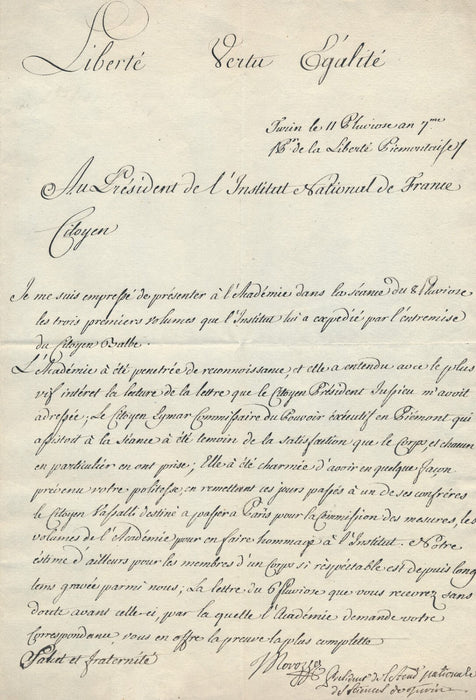 Liberté Vertu Egalité
Turin le 11 Pluviose an 7me
1er de la Liberté Piemontaise
Au Président de l'Institut National de France
Citoyen
Je me suis empressé de présenter à l'Académie dans la séance du 8 Pluviose
les trois premiers volumes que l'Institut lui a expedié par l'entremise
du Citoyen Balbe.
L'Académie à été penetrée de reconnoissance, et elle a entendu avec le plus
vif intéret la lecture de la lettre que le Citoyen Président Jussieu m'avoit
adressée; Le Citoyen Eymar Commissaire du Pouvoir éxécutif en Piémont qui
assistoit à la Séance à été temoin de la satisfaction que le Corps et chacun
en particulier en ont prise; Elle à été charmée d'avoir en quelque façon
prévenu votre politesse, en remettant ces jours passés à un de ses confrères
le Citoyen Vassalli destiné a passer a Paris pour la Commission des mesures, les
volumes de l'Académie pour en faire hommage à l'Institut. Notre
éstime d'ailleurs pour les membres d'un Corps si réspéctable est depuis long
tems gravée parmi nous; La lettre du 6 Pluviose que vous recevrez sans
doute avant celle-ci, par la quelle l'Académie demande votre
Correspondance vous en offre la preuve la plus complette
Salut et fraternité
Morozzo
Président de l'Acad. nationale
des Sciences de Turin